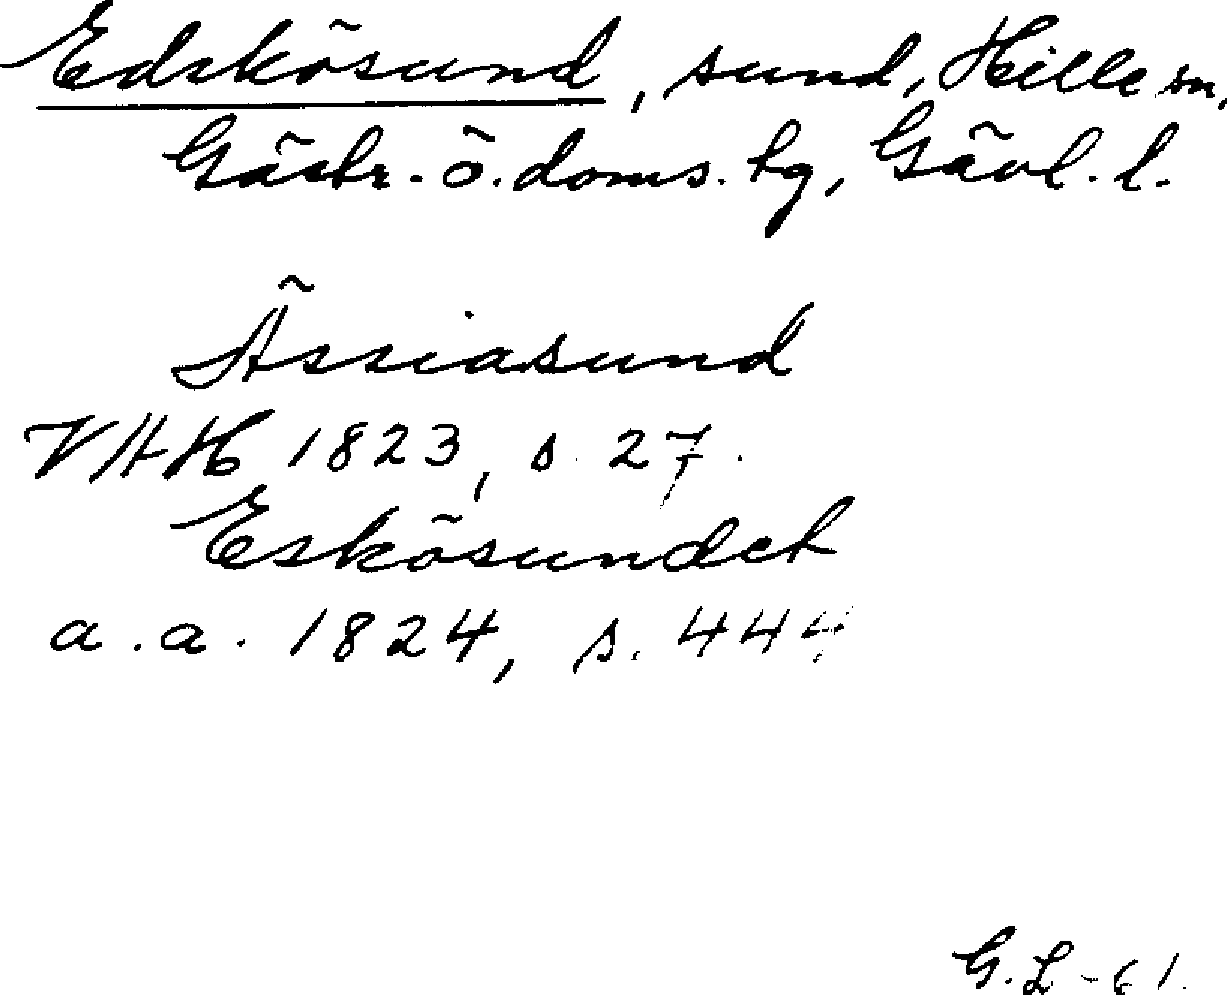 Edskösund, sund, Hille sn,
Gästr. ö. doms. tg, Gävl. l.
Ässiasund
VHH 1823, s. 27.
Eskösundet
a.a. 1824, s. 444
G.L-61.